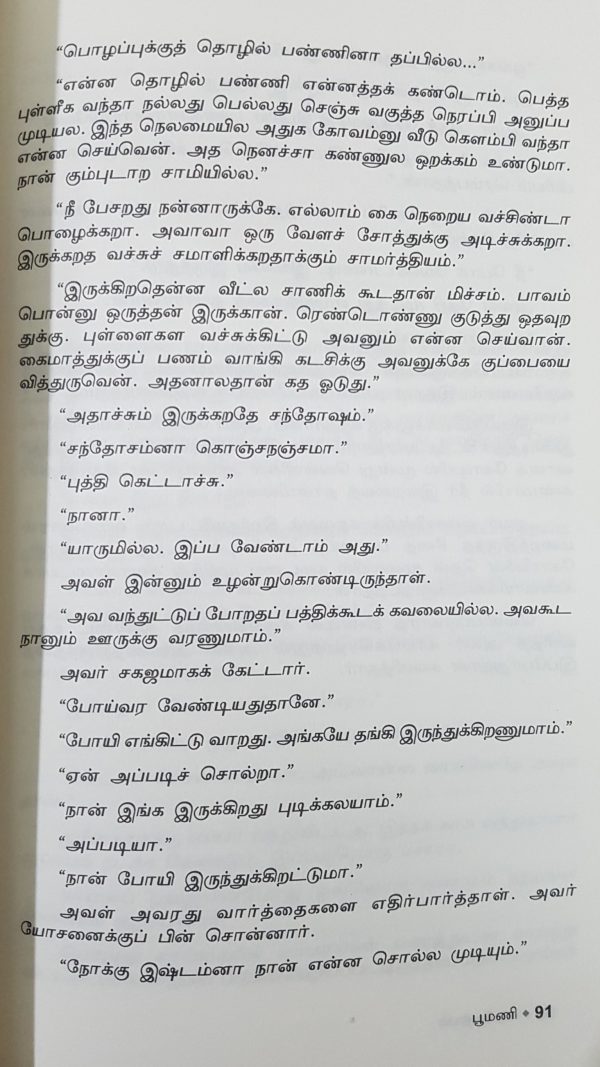 “பொழப்புக்குத் தொழில் பண்ணினா தப்பில்ல...”
“என்ன தொழில் பண்ணி என்னத்தக் கண்டொம். பெத்த
புள்ளீக வந்தா நல்லது பெல்லது செஞ்சு வகுத்த நெரப்பி அனுப்ப
முடியல. இந்த நெலமையில அதுக கோவம்னு வீடு கெளம்பி வந்தா
என்ன செய்வென். அத நெனச்சா கண்ணுல ஒறக்கம் உண்டுமா.
நான் கும்புடாற சாமியில்ல.”
“நீ பேசறது நன்னாருக்கே. எல்லாம் கை நெறைய வச்சிண்டா
பொழைக்கறா. அவாவா ஒரு வேளச் சோத்துக்கு அடிச்சுக்கறா.
இருக்கறத வச்சுச் சமாளிக்கறதாக்கும் சாமர்த்தியம்.”
“இருக்கிறதென்ன வீட்ல சாணிக் கூடதான் மிச்சம். பாவம்
பொன்னு ஒருத்தன் இருக்கான். ரெண்டொண்ணு குடுத்து ஒதவுற
துக்கு. புள்ளைகள வச்சுக்கிட்டு அவனும் என்ன செய்வான்.
கைமாத்துக்குப் பணம் வாங்கி கடசிக்கு அவனுக்கே குப்பையை
வித்துருவென். அதனாலதான் கத ஓடுது.”
“அதாச்சும் இருக்கறதே சந்தோஷம்.”
“சந்தோசம்னா கொஞ்சநஞ்சமா.”
“புத்தி கெட்டாச்சு.”
“நானா.”
“யாருமில்ல. இப்ப வேண்டாம் அது.”
அவள் இன்னும் உழன்றுகொண்டிருந்தாள்.
“அவ வந்துட்டுப் போறதப் பத்திக்கூடக் கவலையில்ல. அவகூட
நானும் ஊருக்கு வரணுமாம்.”
அவர் சகஜமாகக் கேட்டார்.
“போய்வர வேண்டியதுதானே.”
“போயி எங்கிட்டு வாறது. அங்கயே தங்கி இருந்துக்கிறணுமாம்.”
“ஏன் அப்படிச் சொல்றா.”
“நான் இங்க இருக்கிறது புடிக்கலயாம்.”
“அப்படியா.”
“நான் போயி இருந்துக்கிறட்டுமா.”
அவள் அவரது வார்த்தைகளை எதிர்பார்த்தாள். அவர்
யோசனைக்குப் பின் சொன்னார்.
“நோக்கு இஷ்டம்னா நான் என்ன சொல்ல முடியும்.”
பூமணி ◆ 91